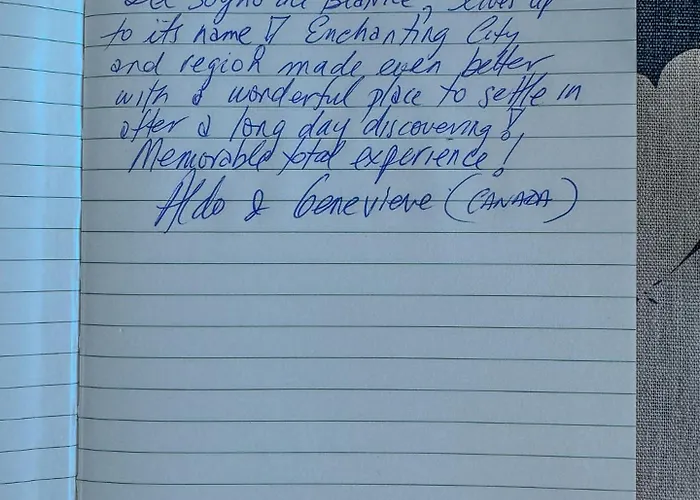 Del Sogno lives up
to its name! Enchanting City
and region made even better
with a wonderful place to settle in
after a long day discovering!
Memorable total experience!
Aldo & Genevieve (CANADA)